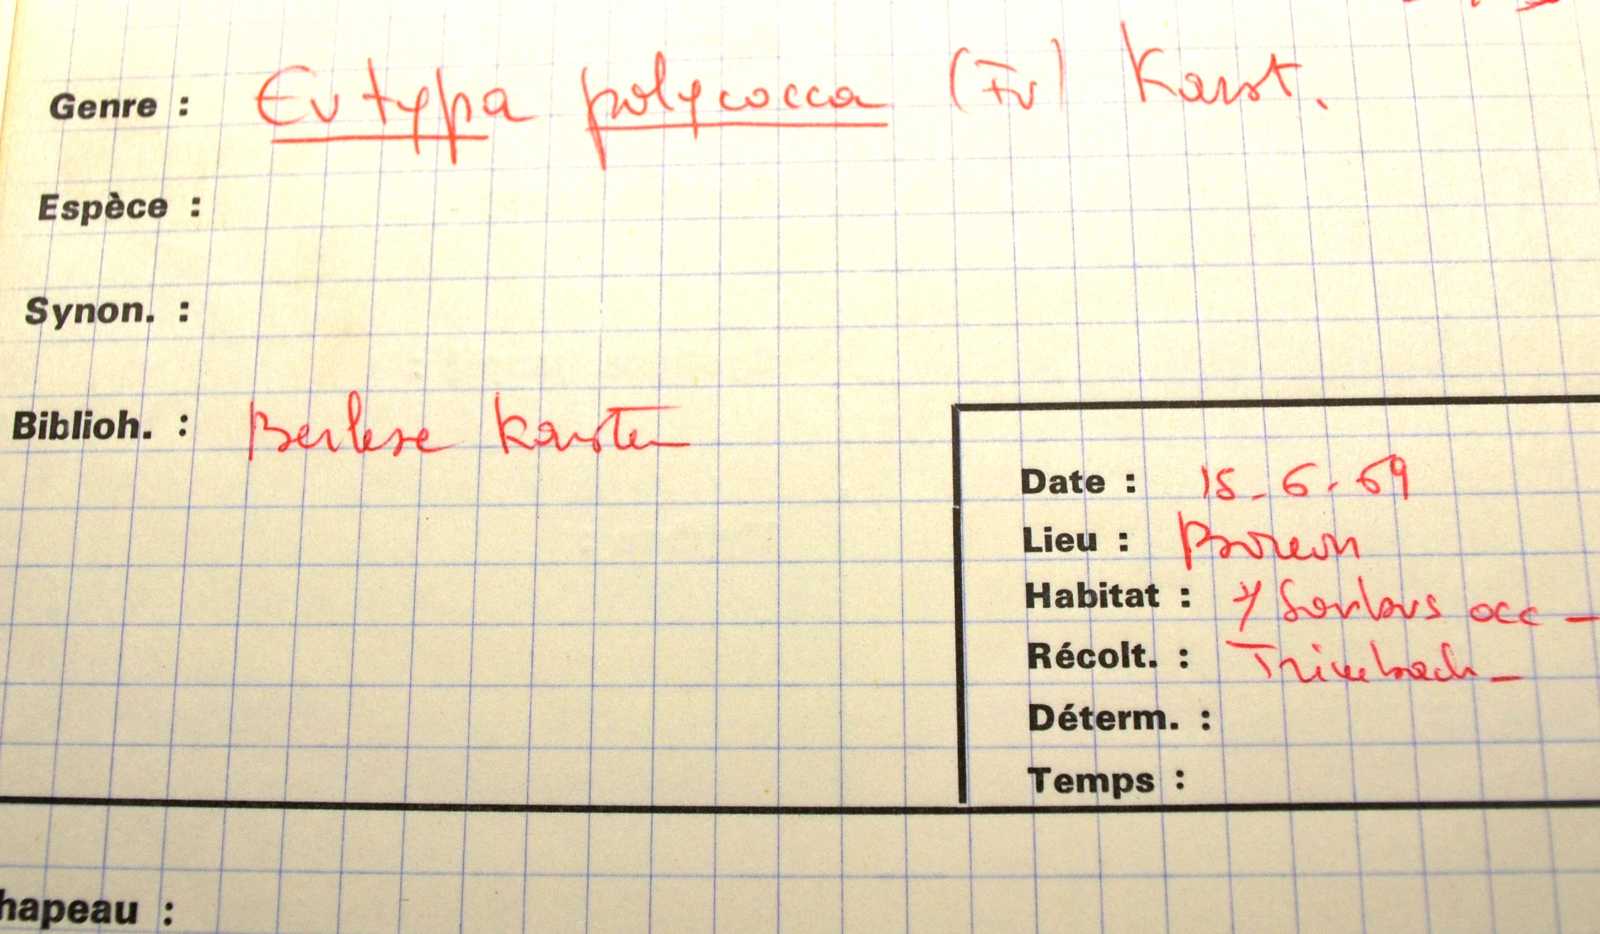 Genre : Eutypa polycocca (Fr) Karst.
Espèce :
Synon. :
Biblioh. : Berlese Karsten
Date : 15-6-69
Lieu : Boreon
Habitat : Sorbus occ -
Récolt. : Trimbach -
Déterm. :
Temps :
hapeau :